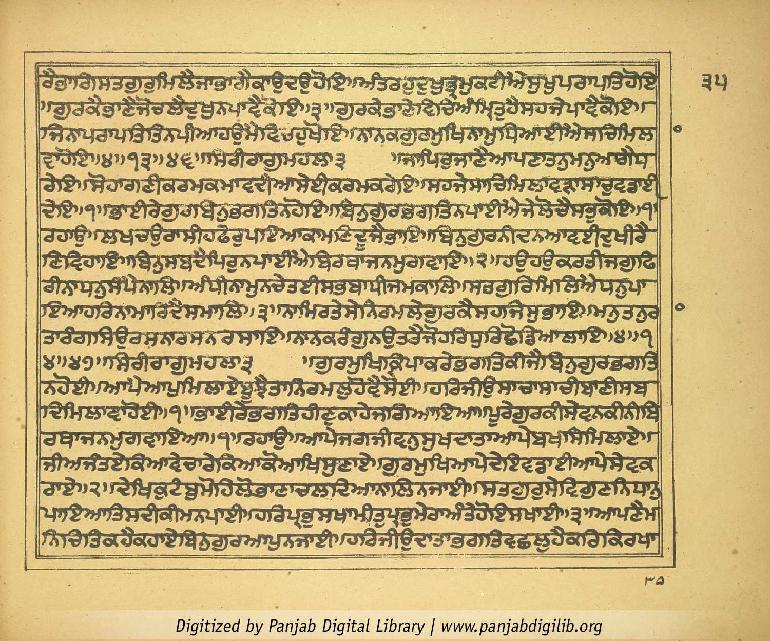 ੩੫
ਰੈਭਾਗਿਸਤਗੁਰੁਮਿਲੈਜਾਭਾਗੈਕਾਉਦਉਹੋਇ॥ਅੰਤਰਹੁਦੁਖੁਭ੍ਰਮੁਕਟੀਐਸੁਖੁਪਰਾਪਤਿਹੋਇ
॥ਗੁਰਕੈਭਾਣੈਜੋਚਲੈਦੁਖੁਨਪਾਵੈਕੋਇ॥੩॥ਗੁਰਕੇਭਾਣੇਵਿਚਿਅੰਮ੍ਰਿਤੁਹੈਸਹਜੇਪਾਵੈਕੋਇ॥
ਜਿਨਾਪਰਾਪਤਿਤਿਨਪੀਆਹਉਮੈਵਿਚਹੁਖੋਇ॥ਨਾਨਕਗੁਰਮੁਖਿਨਾਮੁਧਿਆਈਐਸਚਿਮਿਲ
ਾਵਾਹੋਇ॥੪॥੧੩॥੪੬॥ਸਿਰੀਰਾਗੁਮਹਲਾ੩ ॥ਜਾਪਿਰੁਜਾਣੈਆਪਣਾਤਨੁਮਨੁਅਗੈਧ
ਰੇਇ॥ਸੋਹਾਗਣੀਕਰਮਕਮਾਵਦੀਆਸੇਈਕਰਮਕਰੇਇ॥ਸਹਜੇਸਾਚਿਮਿਲਾਵੜਾਸਾਚੁਵਡਾਈ
ਦੇਇ॥੧॥ਭਾਈਰੇਗੁਰਬਿਨੁਭਗਤਿਨਹੋਇ॥ਬਿਨੁਗੁਰਭਗਤਿਨਪਾਈਐਜੇਲੋਚੈਸਭੁਕੋਇ॥੧॥
ਰਹਾਉ॥ਲਖਚਉਰਾਸੀਹਫੇਰੁਪਇਆਕਾਮਣਿਦੂਜੈਭਾਇ॥ਬਿਨੁਗੁਰਨੀਦਨਆਵਈਦੁਖੀਰੈ
ਣਿਵਿਹਾਇ॥ਬਿਨੁਸਬਦੈਪਿਰੁਨਪਾਈਐਬਿਰਥਾਜਨਮੁਗਵਾਇ॥੨॥ਹਉਹਉਕਰਤੀਜਗੁਫਿ
ਰੀਨਾਧਨੁਸੰਪੈਨਾਲਿ॥ਅੰਧੀਨਾਮੁਨਚੇਤਈਸਭਬਾਧੀਜਮਕਾਲਿ॥ਸਤਗੁਰਿਮਿਲਿਐਧਨੁਪਾ
ਇਆਹਰਿਨਾਮਾਰਿਦੈਸਮਾਲਿ॥੩॥ਨਾਮਿਰਤੇਸੇਨਿਰਮਲੇਗੁਰਕੈਸਹਜਿਸੁਭਾਇ॥ਮਨੁਤਨੁਰ
ਾਤਾਰੰਗਸਿਉਰਸਨਾਰਸਨਰਸਾਇ॥ਨਾਨਕਰੰਗੁਨਉਤਰੈਜੋਹਰਿਧੁਰਿਛੋਡਿਆਲਾਇ॥੪॥੧
੪॥੪੭॥ਸਿਰੀਰਾਗੁਮਹਲਾ੩ ॥ਗੁਰਮੁਖਿਕ੍ਰਿਪਾਕਰੇਭਗਤਿਕੀਜੈਬਿਨੁਗੁਰਭਗਤਿ
ਨਹੋਈ॥ਆਪੈਆਪੁਮਿਲਾਏਬੂਝੈਤਾਨਿਰਮਲੁਹੋਵੈਸੋਈ॥ਹਰਿਜੀਉਸਾਚਾਸਾਚੀਬਾਣੀਸਬ
ਦਿਮਿਲਾਵਾਹੋਈ॥੧॥ਭਾਈਰੇਭਗਤਿਹੀਣੁਕਾਹੇਜਗਿਆਇਆ॥ਪੂਰੇਗੁਰਕੀਸੇਵਨਕੀਨੀਬਿ
ਰਥਾਜਨਮੁਗਵਾਇਆ॥੧॥ਰਹਾਉ॥ਆਪੇਜਗਜੀਵਨੁਸੁਖਦਾਤਾਆਪੇਬਖਸਿਮਿਲਾਏ॥
ਜੀਅਜੰਤਏਕਿਆਵੇਚਾਰੇਕਿਆਕੋਆਖਿਸੁਣਾਏ॥ਗੁਰਮੁਖਿਆਪੇਦੇਇਵਡਾਈਆਪੇਸੇਵਕ
ਰਾਏ॥੨॥ਦੇਖਿਕੁਟੰਬੁਮੋਹਿਲੋਭਾਣਾਚਲਦਿਆਨਾਲਿਨਜਾਈ॥ਸਤਗੁਰੁਸੇਵਿਗੁਣਨਿਧਾਨੁ
ਪਾਇਆਤਿਸਦੀਕੀਮਨਪਾਈ॥ਹਰਿਪ੍ਰਭੁਸਖਾਮੀਤੁਪ੍ਰਭੁਮੇਰਾਅੰਤੇਹੋਇਸਖਾਈ॥੩॥ਆਪਣੈਮ
ਨਿਚਿਤਿਕਹੈਕਹਾਏਬਿਨੁਗੁਰਆਪੁਨਜਾਈ॥ਹਰਿਜੀਉਦਾਤਾਭਗਤਿਵਛਲੁਹੈਕਰਿਕਿਰਪਾ
੩੭
Digitized by Panjab Digital Library | www.panjabdigilib.org